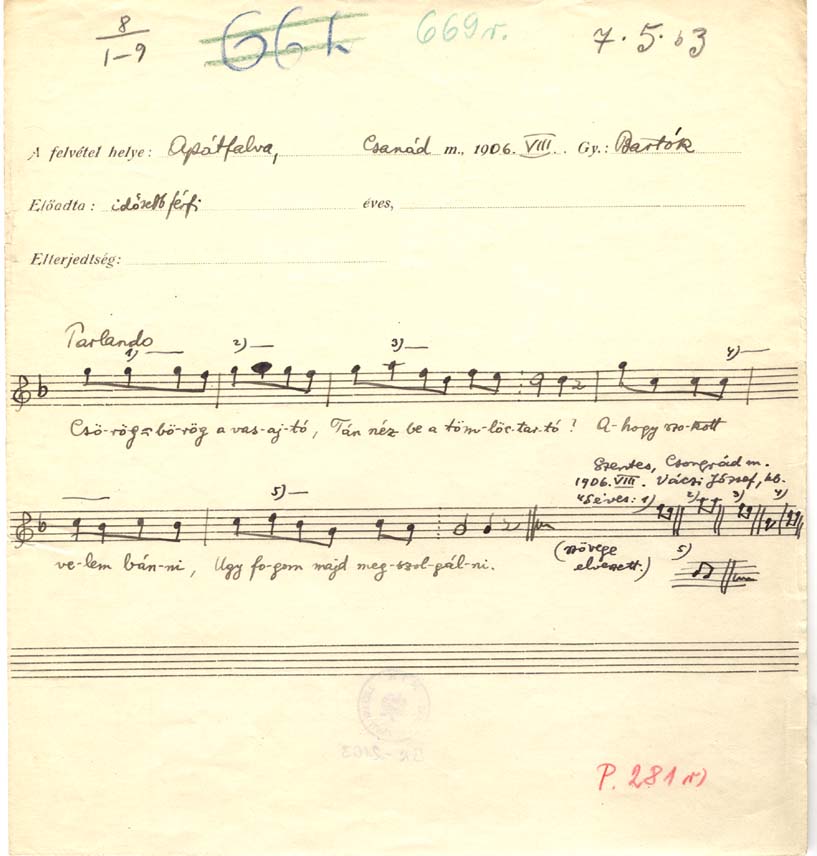 8
1-9
669r.
7.5.63
A felvétel helye: Apátfalva, Csanád m., 1906. VIII. Gy.: Bartók
Előadta: idősebb férfi éves,
Elterjedtség:
Parlando
1) 2) 3) 4)
Csö-rög-bö-rög a vas-aj-tó, Tán néz be a töm-löc-tar-tó? A-hogy szo-kott
Szentes, Csongrád m.
1906. VIII. Váczi József, kb.
45 éves: 1) 2) 3) 4)
5)
ve-lem bán-ni, Ugy fo-gom majd meg-szol-gál-ni.
(szövege 5)
elveszett.)
P. 281 r)